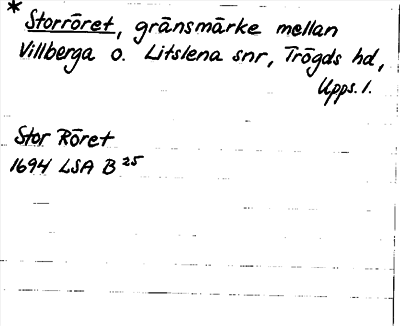 * Storröret, gränsmärke mellan
Villberga o. Litslena snr, Trögds hd,
Upps. l.
Stor Röret
1694 LSA B 25